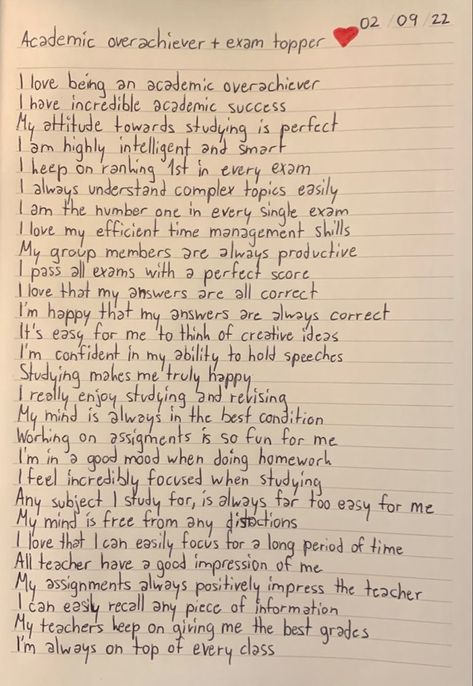 02/09/22
Academic overachiever + exam topper
I love being an academic overachiever
I have incredible academic success
My attitude towards studying is perfect
I am highly intelligent and smart
I keep on ranking 1st in every exam
I always understand complex topics easily
I am the number one in every single exam
I love my efficient time management skills
My group members are always productive
I pass all exams with a perfect score
I love that my answers are all correct
I'm happy that my answers are always correct
It's easy for me to think of creative ideas
I'm confident in my ability to hold speeches
Studying makes me truly happy
I really enjoy studying and revising
My mind is always in the best condition
Working on assigments is so fun for me
I'm in a good mood when doing homework
I feel incredibly focused when studying
Any subject I study for, is always far too easy for me
My mind is free from any distactions
I love that I can easily focus for a long period of time
All teacher have a good impression of me
My assignments always positively impress the teacher
I can easily recall any piece of information
My teachers keep on giving me the best grades
I'm always on top of every class